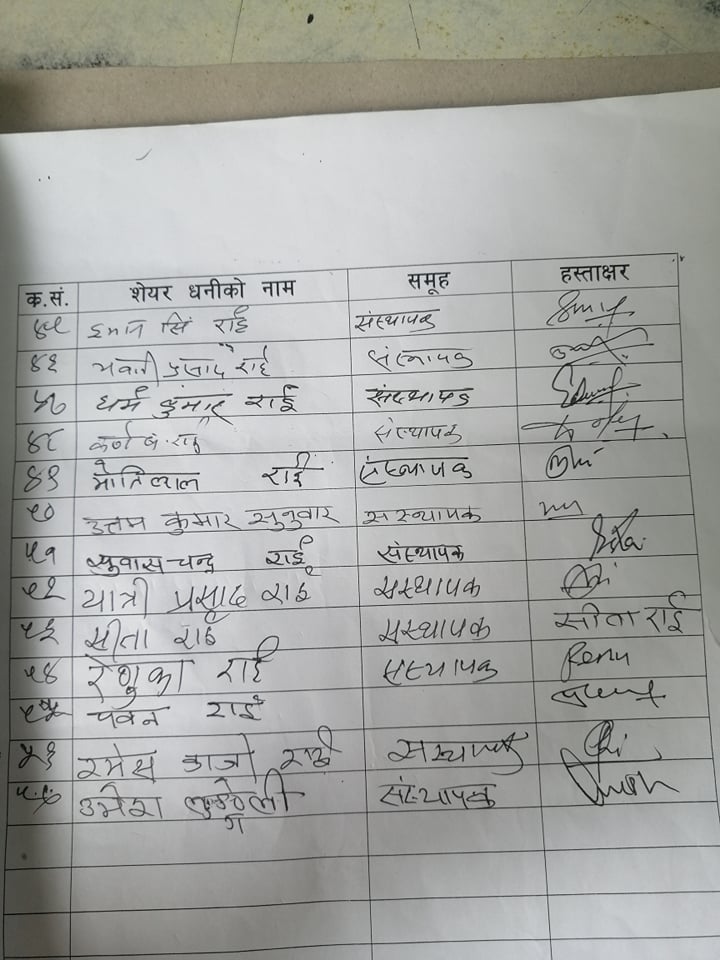 क.सं. शेयर धनीको नाम समूह हस्ताक्षर
४५ सिं राई संस्थापक
४६ भवानी प्रसाद राई संस्थापक
४७ धर्म कुमार राई संस्थापक
४८ कर्ण ब. राई संस्थापक
४९ मोतिलाल राई संस्थापक
५० उत्तम कुमार सुनुवार सस्थापक
५१ सुवास चन्द्र राई संस्थापक
५२ यात्री प्रसाद राई सस्थापक
५३ सीता राई सस्थापक सीता राई
५४ रेणुका राई संस्थापक Renu
५५ पवन राई
५६ रमेस काजी राई सस्थापक
५७ उमेश संस्थापक